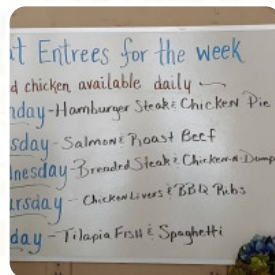 t Entrees for the week
d chicken available daily
nday - Hamburger Steak & Chicken Pie
sday - Salmon & Roast Beef
nesday - Breaded Steak & Chicken-n-Dump
ursday - Chicken Livers & BBQ Ribs
day - Tilapia Fish & Spaghetti